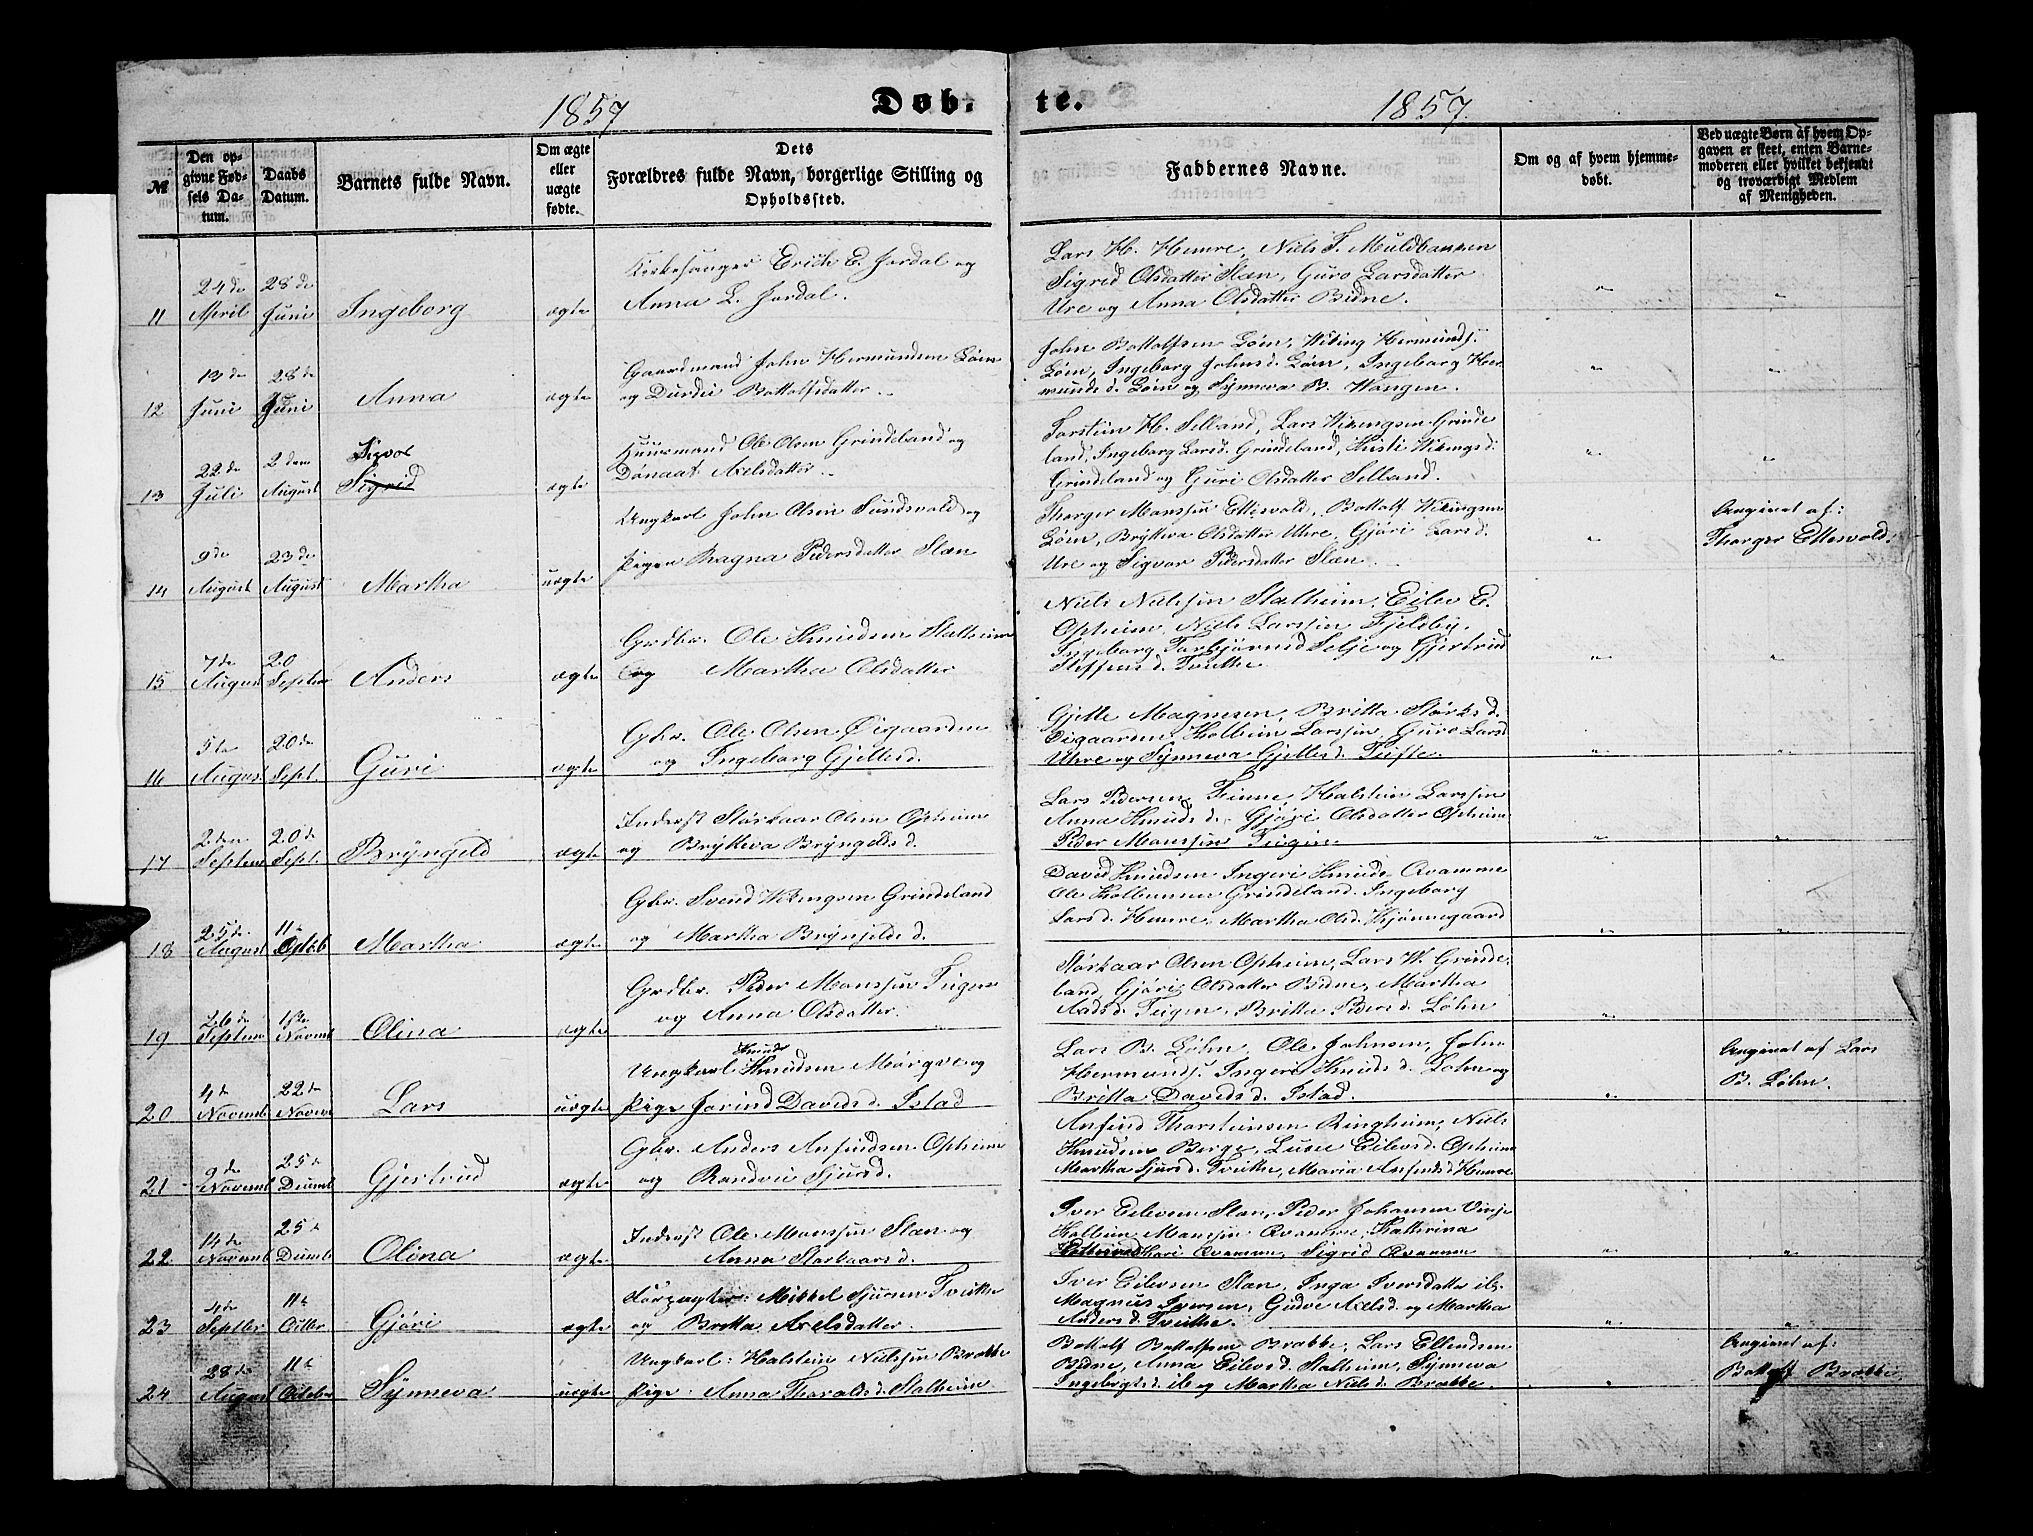 1857 Døb- te. 1857.
№
Den opgivne Fødsels Datum.
Daabs Datum.
Barnets fulde Navn.
Om ægte eller uægte fødte.
Dets Forældres fulde Navn, borgerlige Stilling og Opholdssted.
Faddernes Navne.
Om og af hvem hjemmedøbt.
Ved uægte Børn af hvem Opgaven er skeet, enten Barnemoderen eller hvilket bekjendt og troværdigt Medlem af Menigheden.
11 24de April 28de Juni Ingeborg ægte
Kirkesanger Erich E. Jordal og
Anna L. Jordal.
Lars H. Humre, Niels T.
Sigrid Olsdatter Slæn, Guro Larsdatter
Ure og Anna Olsdatter Bidne.
12 13de Juni 28de Juni Anna ægte
Gaardmand John Hermundsen Løin
og Durdei Bottolfsdatter..
John Bottolfsen Løin, Wiking Hermunds.
Løin, Ingeborg Johns d. Løin, Ingeborg Her
munds d. Løin og Synneva B. Wangen.
13 22de Juli 2den August Sigvor
Sigrid ægte
Huusmand Ole Olsen Grindeland og
Dønaat Axelsdatter..
Torstein H. Selland, Lars Wikingsen Grinde
land, Ingeborg Larsd. Grindeland, Kisti Wikingsd.
Grindeland og Guri Olsdatter Selland.
14 9de August 23de August Martha uægte
Ungkarl John Olsen Sundsvold og
Pigen Ragna Pedersdatter Slæn
Thorger Monssen Ettesvold, Bottolf Wikingsen
Løin, Bryteva Olsdatter Uhre, Gjøri Lars d.
Ure og Sigvor Pedersdatter Slæn.
Angivet af:
Thorger Ettesvold.
15 7de August 20 Septbr Anders ægte
Grdbr. Ole Knudsen Stalheim
og Martha Olsdatter
Niels Nielssen Stalheim, Eilev E.
Opheim, Niels Larssen Fjelsby,
Ingeborg Torbjørnsd Selje og Gjertrud
Steffens d. Tvitte.
16 5te August 20de Sept. Guri ægte
Gbr. Ole Olsen Øigaarden
og Ingeborg Gjelles d.
Gjelle Magnesen, Britta Størks d.
Øigaarden, Kolbein Larssen, Guro Larsd
Uhre og Synneva Gjelles d. Tufte.
17 2den Septem 20de Sept. Bryngeld ægte
Inderst Størkaar Olsen Opheim
og Brytteva Bryngelds d.
Lars Pedersen Finne, Halstein Larssen
Anna Knuds d. Gjøri Olsdatter Opheim
Peder Monssen Teigen.
18 25de August 11te Octob Martha ægte
Gbr. Svend Wikingsen Grindeland
og Martha Brynjelds d.
David Knudsen Ingeri Knuds. Qvamme
Ole Kolbensen Grindeland. Ingeborg
Lars d. Humre. Martha Ols d. Kjønnegaard
19 26de Septem 1ste Novemb Olina ægte
Grdbr. Peder Monssen Teigen
og Anna Olsdatter.
Størkaar Olsen Opheim, Lars W. Grinde-
land, Gjøri Olsdatter Bidne, Martha
Aads d. Teigen, Britta Peders d. Løhn
20 4de Novemb 22de Novem Lars uægte
Ungkarl Knud Knudsen Mørqve og
Pige Jorind Davids d. Istad
Lars B. Løhn, Ole Johnsen, John
Hermunds. Ingeri Knuds d. Løhn og
Britta Davids d. Istad.
Angivet af Lars
B. Løhn.
21 9de Novemb 25de Decemb Gjertrud ægte
Gbr. Anders Anfindsen Opheim
og Randvei Sjurs d.
Anfind Thorsteinsen Ringheim, Niels
Knudsen Berge, Lusie Eilevs d. Opheim
Martha Sjurs d. Tvitte, Maria Anfinds d. Humre
22 14de Novemb 25de Decemb Olina ægte
Inderst Ole Monssen Slæn og
Anna Størkaars d.
Iver Eilevsen Slæn, Peder Johansen Vinje
Kolbein Monssen Qvamme, Kattrina
Kari Qvammen, Sigrid Qvammen
23 4de Septbr 11te Octbr Gjøri ægte
Forpagter: Mikkel Sjursen Tvitte
og Britta Axelsdatter.
Iver Eilevsen Slæn, Inga Iversdatter ib.
Magnus Iversen, Gudve Axels d. og Martha
Anders d. Tvitte.
24 28de August 11te October Synneva uægte
Ungkarl: Halstein Nielssen Brække
Pige: Anna Tharalds d. Stalheim
Bottolf Bottolfsen Brække, Lars Ellendsen
Bidne, Anna Eilevs d. Stalheim, Synneva
Ingebrigts d. ib og Martha Niels d. Brække.
Angivet af:
Bottolf Brække,